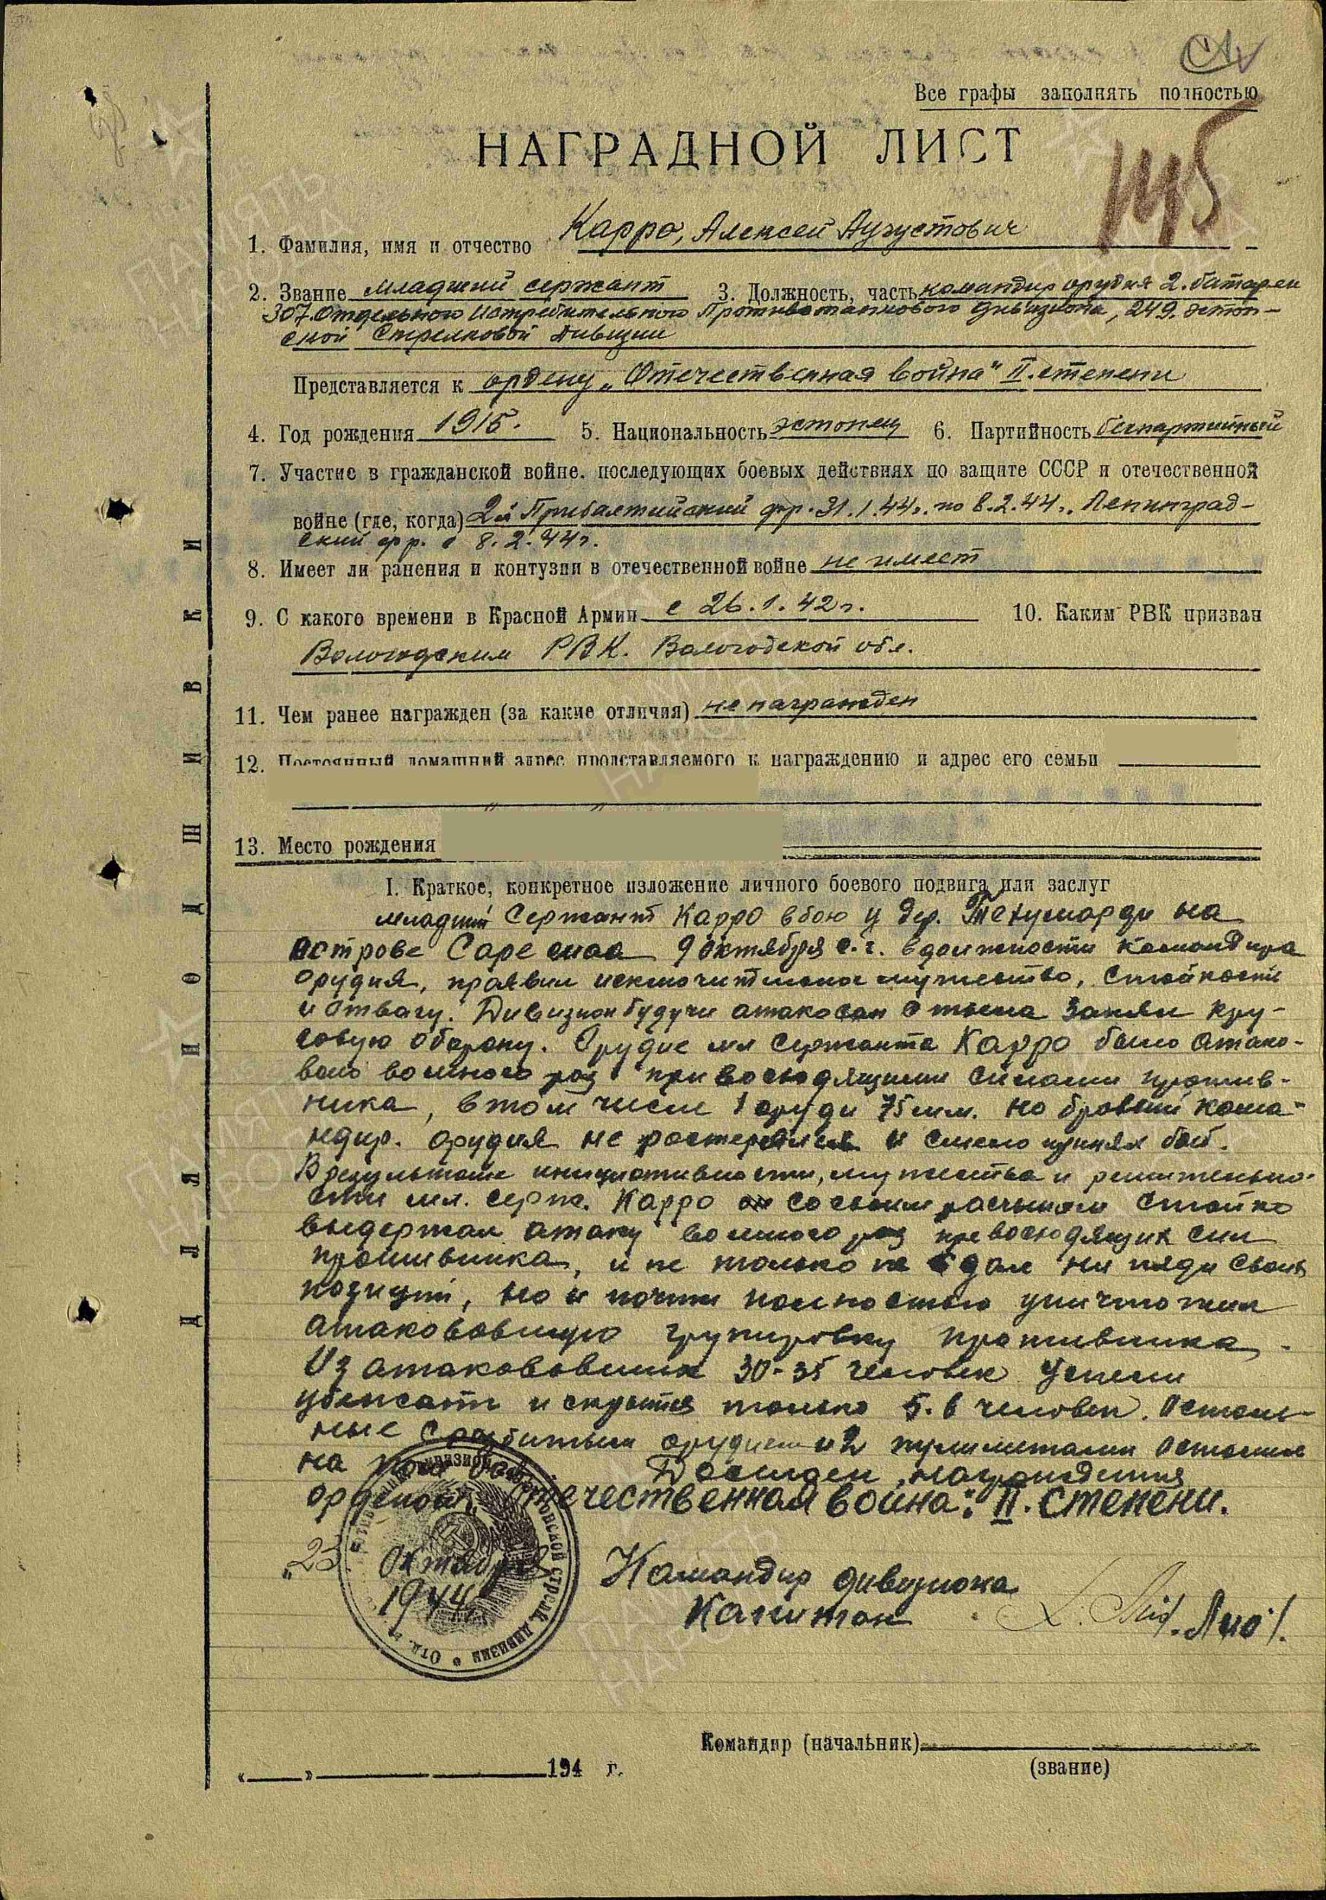 Все графы заполнять полностью
НАГРАДНОЙ ЛИСТ
1415
1. Фамилия, имя и отчество Карро, Алексей Аугустович
2. Звание младший сержант 3. Должность, часть командир орудия 2. батареи
307. Отдельного Истребительного Противотанкового дивизиона, 249. эстон-
ской Стрелковой Дивизии
Представляется к ордену „Отечественная война" II. степени
4. Год рождения 1915. 5. Национальность эстонец 6. Партийность беспартийный
7. Участие в гражданской войне. последующих боевых действиях по защите СССР и отечественной
войне (где, когда) 2й Прибалтийский фр. 31.1.44г. по 8.2.44г. Ленинград-
ский фр. с 8.2.44г.
8. Имеет ли ранения и контузии в отечественной войне не имеет
9. С какого времени в Красной Армии с 26.1.42г. 10. Каким РВК призван
Вологодским РВК. Вологодской обл.
11. Чем ранее награжден (за какие отличия) не награжден
12. Постоянный домашний адрес представляемого к награждению и адрес его семьи
13. Место рождения
I. Краткое, конкретное изложение личного боевого подвига или заслуг
младший Сержант Карро в бою у дер. на
острове Сарема 9 октября с.г. в должности командира
орудия, проявил исключительное мужество, стойкость
и отвагу. Дивизион будучи атакован с тыла занял кру-
говую оборону. Орудие мл сержанта Карро было атако-
вано много раз превосходящими силами против-
ника, в том числе 1 оруди 75 мм. но бравый кома-
ндир. орудия не растерялся и смело принял бой.
В результате инициативности, мужества и решительно-
сти мл. серж. Карро он со своим расчетом стойко
выдержал атаку много раз превосходящих сил
противника, и не только не сдал ни пяди своих
позиций, но и почти полностью уничтожил
атаковавшую группировку противника.
Из атаковавших 30-35 человек успели
убежать и скрытся только 5-6 человек. Осталь-
ные с орудием и 2 пулиметами остались
на поле боя. Достоин награждения
орденом: Отечественная война: II. степени.
„23 Октября
1944
Командир дивизиона
Капитан /. Лио /.
Командир (начальник)
« » 194 г. (звание)
ДЛЯ ПОДШИВКИ
ПАМЯТЬ НАРОДА